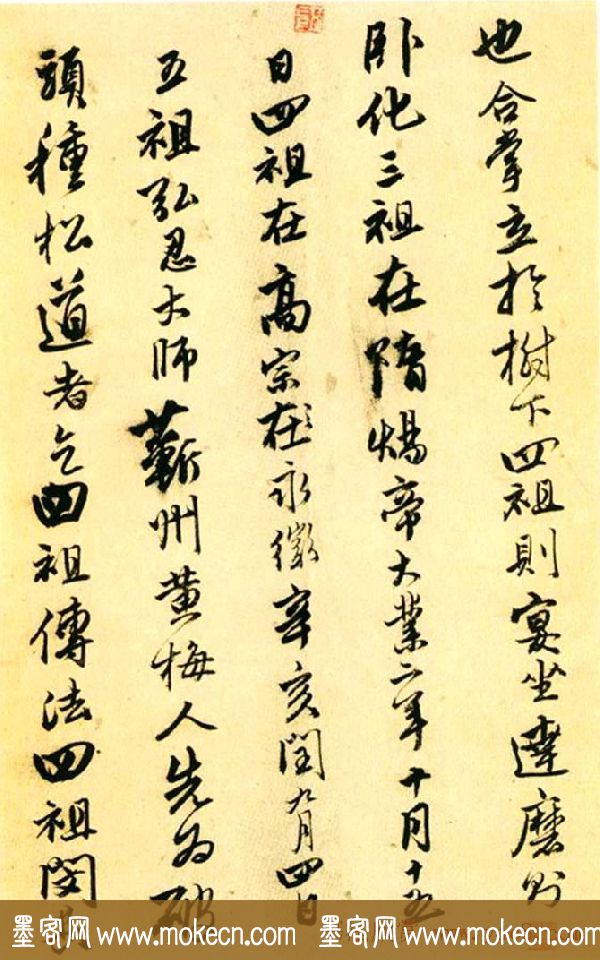 也合掌立於樹下四祖則宴坐達磨則
卧化三祖在隋煬帝大業二年十月十五
日四祖在高宗在永徽辛亥閏九月四日
五祖弘忍大師蘄州黃梅人先為破
頭種松道者乞四祖傳法四祖閔
墨客网 www.mokecn.com 墨客网 www.mokecn.com